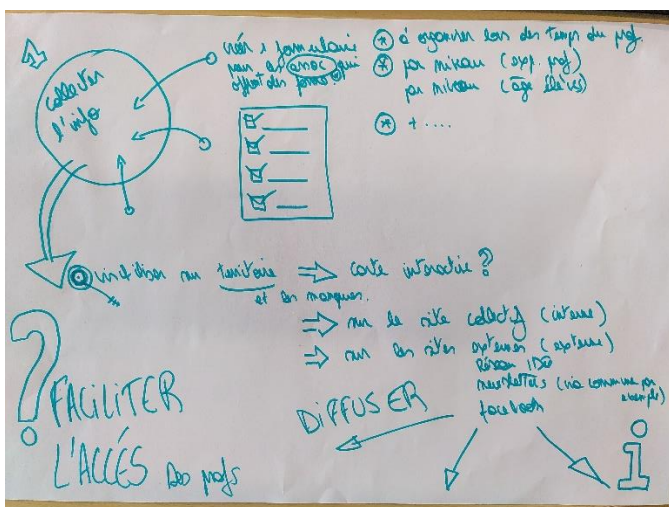 1
collecter
l'info
créer 1 formulaire
pour les assoc qui
offrent des forma°
* à organiser lors des temps du prof.
* par niveau (exp. prof)
par niveau (âge élèves)
* + ....
visibiliser sur territoire ⇒ carte interactive ?
et les manques.
⇒ sur le site collectif (interne)
⇒ sur les sites externes (externe)
Réseau IDée
newsletters (via commune par
exemple)
facebook
DIFFUSER
? FACILITER
L'ACCÉS des profs
i